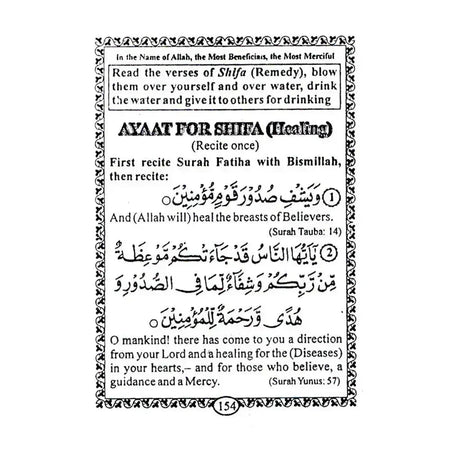 In the Name of Allah, the Most Beneficinis, the Most Merciful
Read the verses of Shifa (Remedy), blow
them over yourself and over water, drink
the water and give it to others for drinking
AYAAT FOR SHIFA (Healing)
(Recite once)
First recite Surah Fatiha with Bismillah,
then recite:
① وَيَشْفِ صُدُوْرَ قَوْمٍ مُّؤْمِنِيْنَ ○
And (Allah will) heal the breasts of Believers.
(Surah Tauba: 14)
② يٰٓاَيُّهَا النَّاسُ قَدْ جَآءَتْكُمْ مَّوْعِظَةٌ
مِّنْ رَّبِّكُمْ وَشِفَآءٌ لِّمَا فِى الصُّدُوْرِ وَ
هُدًى وَّرَحْمَةٌ لِّلْمُؤْمِنِيْنَ ○
O mankind! there has come to you a direction
from your Lord and a healing for the (Diseases)
in your hearts,– and for those who believe, a
guidance and a Mercy.
(Surah Yunus: 57)
154